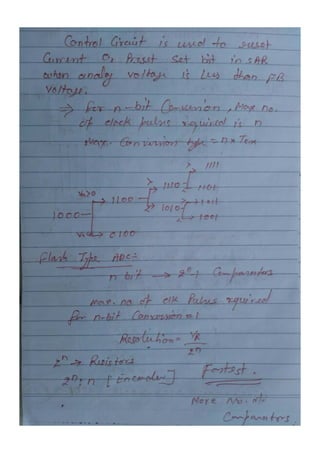 Control Circuit is used to reset
Current or Preset set bit in SAR
when analog voltage is less than FB
voltage.
⇒ for n-bit Conversion, Max no.
of clock pulses required is n
Max. Conversion = n × TCLK
1111
1110
1101
1100
1011
Va>0
1010
1001
1000
0100
Flash Type ADC:-
n bit → 2ⁿ-1 Comparators
max. no of clk Pulses required
for n-bit Conversion = 1
Resolution = VR/2ⁿ
2ⁿ → Resistors
2ⁿ : n [Encoder] Fastest.
More No. of
Comparators.